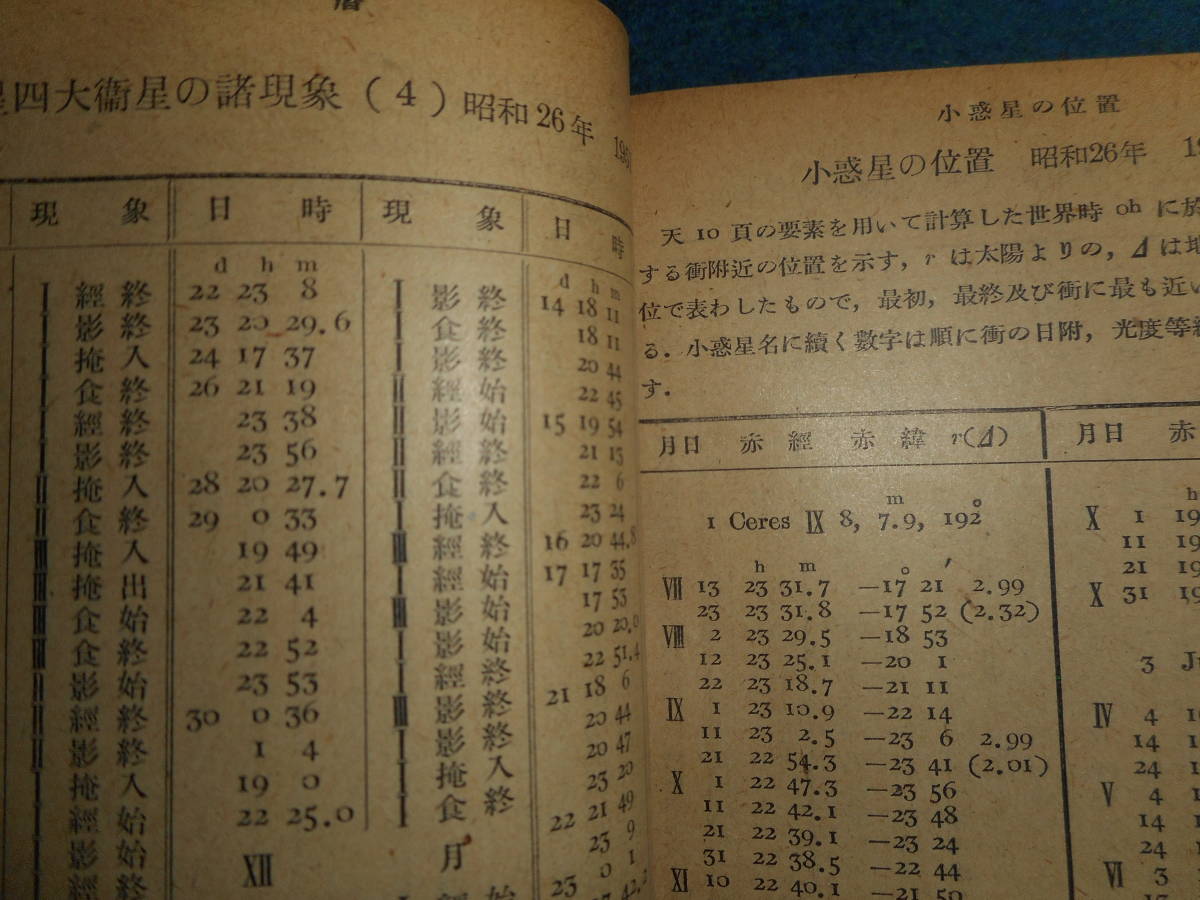 暦
星四大衞星の諸現象（4）昭和26年
現 象 日 時 現 象 日 時
d h m
經 終 22 23 8
影 終 23 20 29.6
掩 入 24 17 37
食 終 26 21 19
經 終 23 38
影 終 23 56
Ⅱ 掩 入 28 20 27.7
食 終 29 0 33
Ⅲ 掩 入 19 49
Ⅲ 掩 出 21 41
Ⅲ 食 始 22 4
Ⅲ 食 終 22 52
Ⅱ 影 始 23 53
Ⅱ 經 終 30 0 36
Ⅱ 影 終 1 4
Ⅰ 掩 入 19 0
經 始 22 25.0
影 始
經 終
Ⅻ 月
d h m
14 18 11
18 11
20 44
22 45
15 19 54
21 13
22 6
23 24
16 20 44.8
17 17 35
17 53
20 20.0
22 51.4
21 18 6
20 44
20 47
23 20
22 21 49
23 9
0 1
23
Ⅰ 影 終
Ⅰ 食 終
Ⅰ 影 終
Ⅱ 經 始
Ⅱ 影 始
Ⅱ 經 終
Ⅱ 食 終
Ⅰ 掩 入
Ⅲ 經 終
Ⅰ 經 始
Ⅲ 影 始
Ⅰ 影 始
Ⅰ 經 終
Ⅲ 影 終
Ⅰ 影 終
Ⅰ 掩 入
Ⅰ 食 終
小惑星の位置
小惑星の位置 昭和26年
天 10 頁の要素を用いて計算した世界時 0h に於
する衝附近の位置を示す，r は太陽よりの，Δ は地
位で表わしたもので，最初，最終及び衝に最も近い
る．小惑星名に續く數字は順に衝の日附，光度等級
す．
月日 赤 經 赤 緯 r(Δ)
m °
1 Ceres Ⅸ 8, 7.9, 192
h m ° ′
Ⅶ 13 23 31.7 −17 21 2.99
23 23 31.8 −17 52 (2.32)
Ⅷ 2 23 29.5 −18 53
12 23 25.1 −20 1
22 23 18.7 −21 11
Ⅸ 1 23 10.9 −22 14
11 23 2.5 −23 6 2.99
21 22 54.3 −23 41 (2.01)
Ⅹ 1 22 47.3 −23 56
11 22 42.1 −23 48
21 22 39.1 −23 24
31 22 38.5 −22 44
Ⅺ 10 22 40.1 −21 50
月日 赤
h
Ⅹ 1 19
11 19
21 19
Ⅹ 31 19
3 J
Ⅳ 4
14
24
Ⅴ 4
14
24
Ⅵ 3